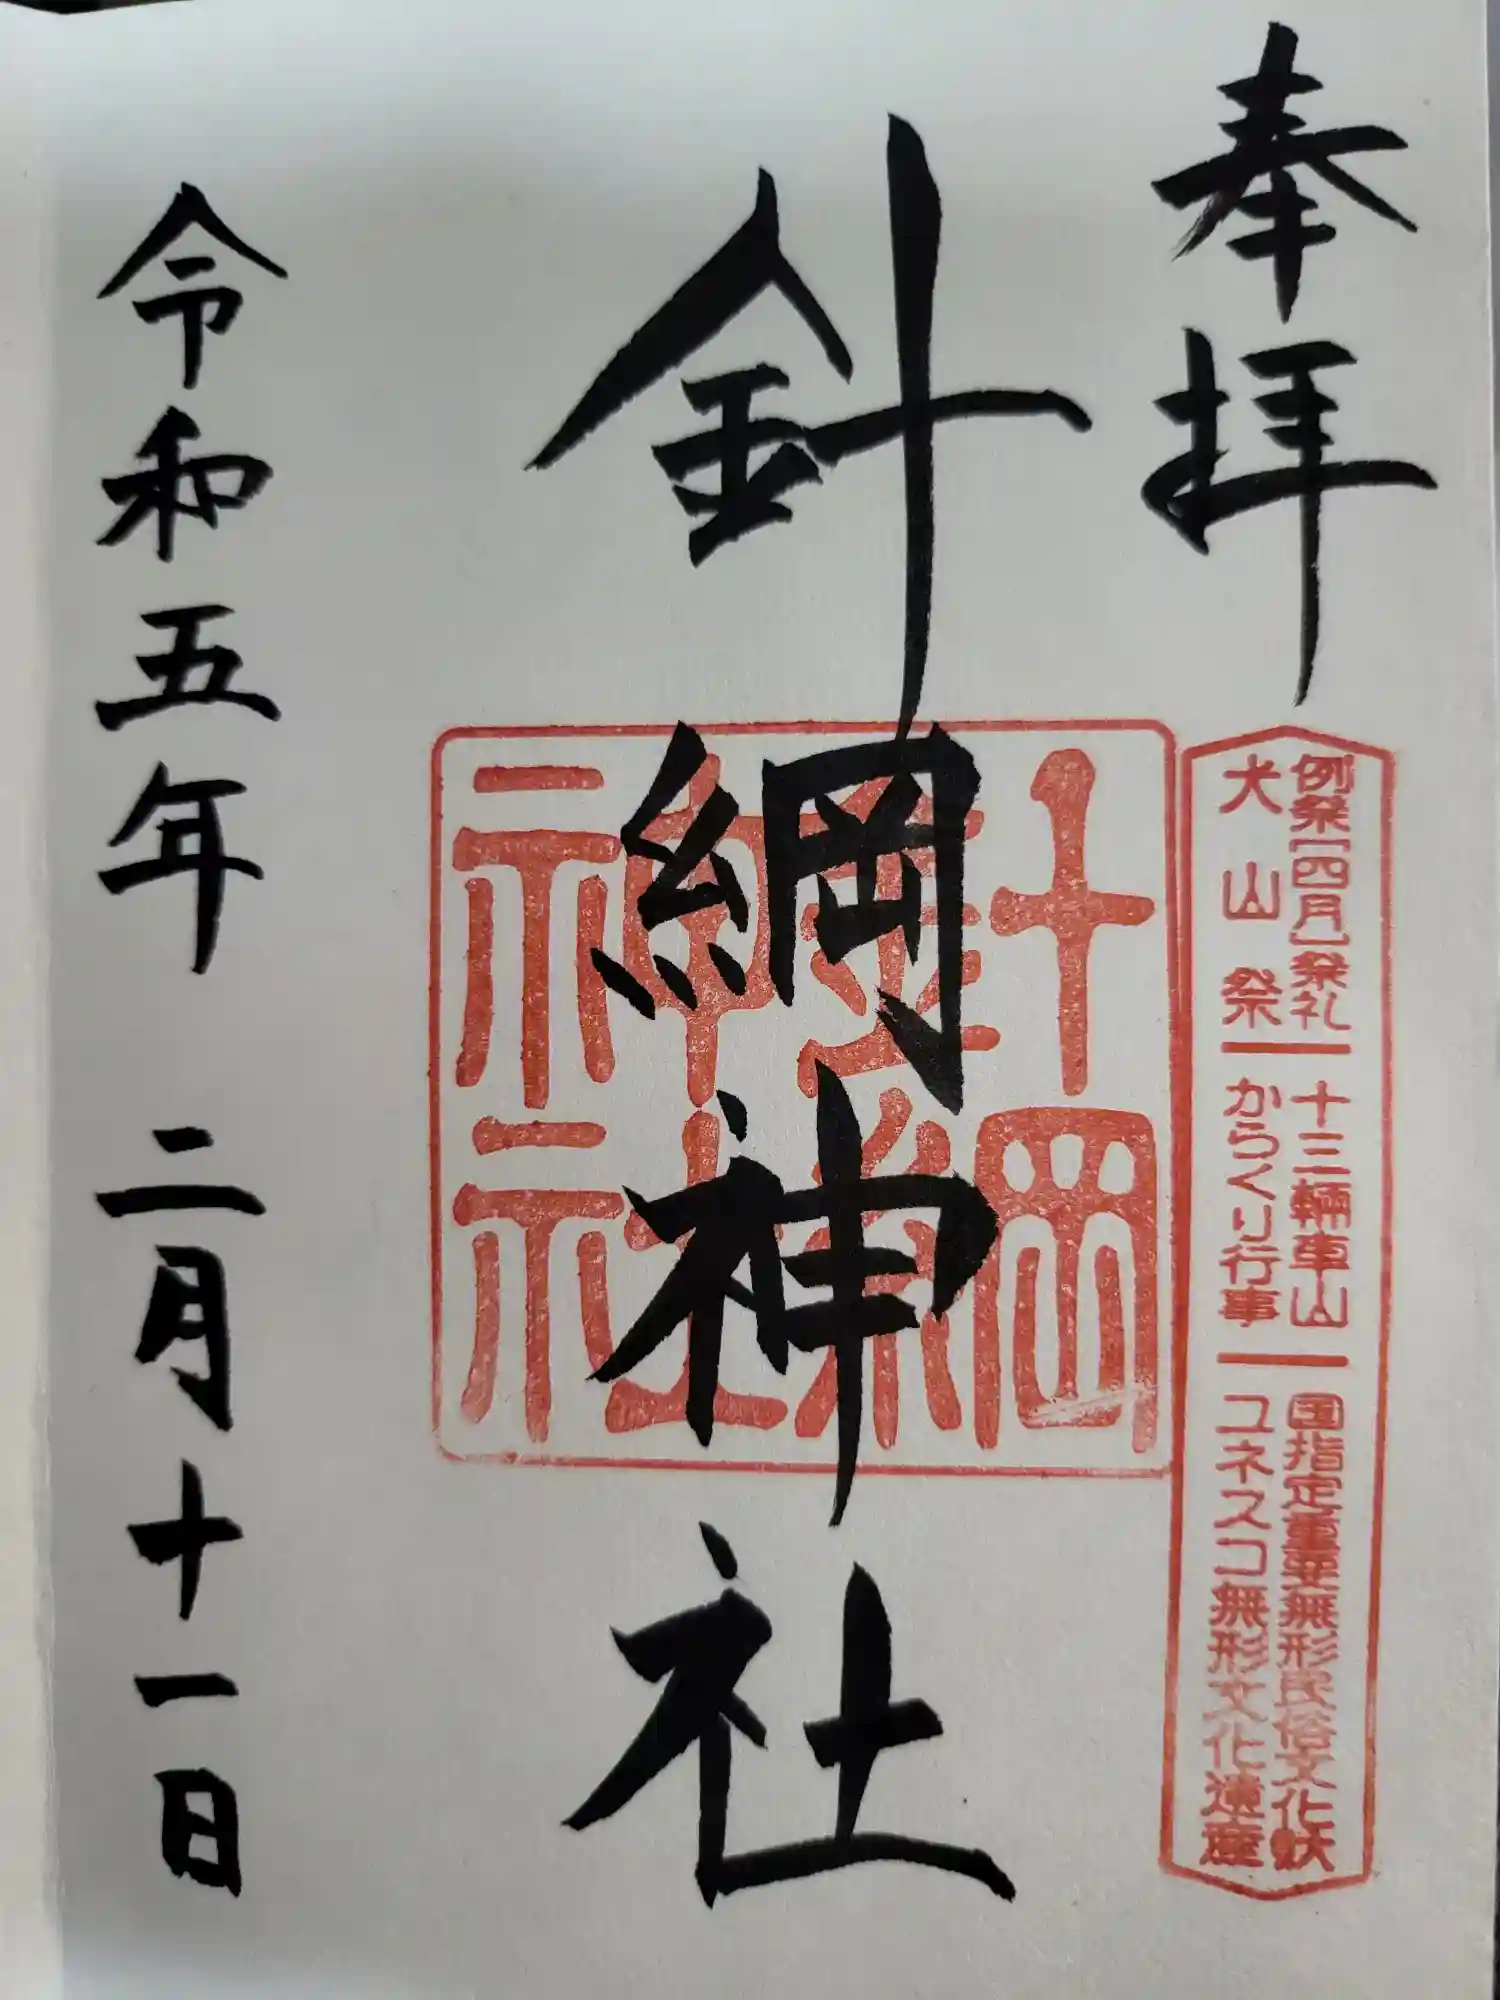 奉拝
例祭[四月]祭礼 十三輛車山 国指定重要無形民俗文化財
犬山祭 からくり行事 ユネスコ無形文化遺産
針綱神社
針綱神社
令和五年 二月十一日